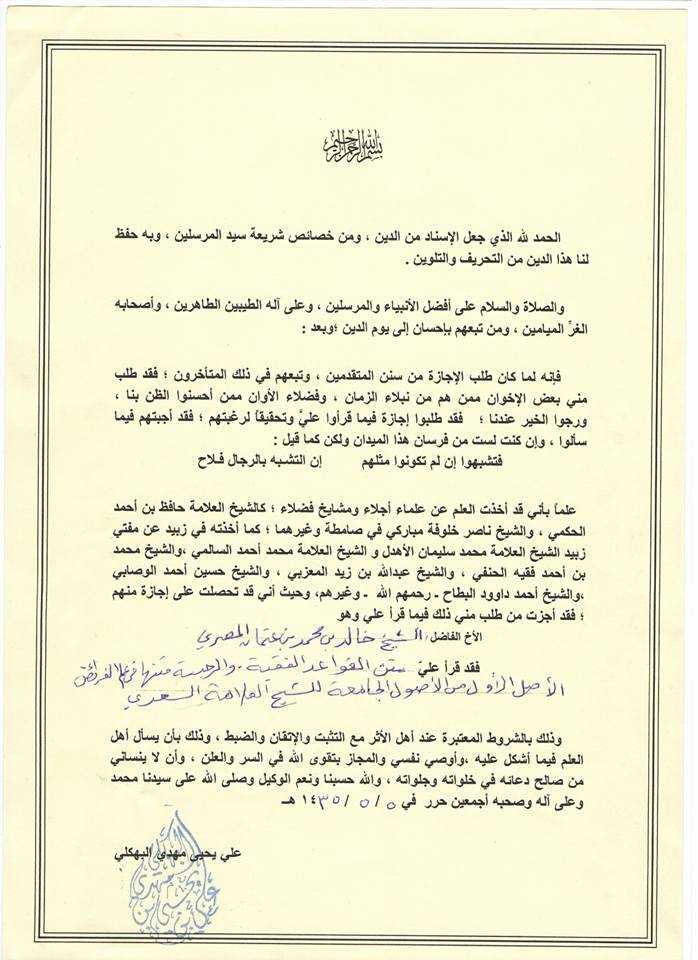 بسم الله الرحمن الرحيم
الحمد لله الذي جعل الإسناد من الدين ، ومن خصائص شريعة سيد المرسلين ، وبه حفظ
لنا هذا الدين من التحريف والتلوين .
والصلاة والسلام على أفضل الأنبياء والمرسلين ، وعلى آله الطيبين الطاهرين ، وأصحابه
الغرِّ الميامين ، ومن تبعهم بإحسان إلى يوم الدين ؛وبعد :
فإنه لما كان طلب الإجازة من سنن المتقدمين ، وتبعهم في ذلك المتأخرون ؛ فقد طلب
مني بعض الإخوان ممن هم من نبلاء الزمان ، وفضلاء الأوان ممن أحسنوا الظن بنا ،
ورجوا الخير عندنا ؛ فقد طلبوا إجازة فيما قرأوا عليَّ وتحقيقاً لرغبتهم ؛ فقد أجبتهم فيما
سألوا ، وإن كنت لست من فرسان هذا الميدان ولكن كما قيل :
فتشبهوا إن لم تكونوا مثلهم إن التشبه بالرجال فلاح
علماً بأني قد أخذت العلم عن علماء أجلاء ومشايخ فضلاء ؛ كالشيخ العلامة حافظ بن أحمد
الحكمي ، والشيخ ناصر خلوفة مباركي في صامطة وغيرهما ؛ كما أخذته في زبيد عن مفتي
زبيد الشيخ العلامة محمد سليمان الأهدل و الشيخ العلامة محمد أحمد السالمي ،والشيخ محمد
بن أحمد فقيه الحنفي ، والشيخ عبدالله بن زيد المعزبي ، والشيخ حسين أحمد الوصابي
،والشيخ أحمد داوود البطاح ـ رحمهم الله ـ وغيرهم، وحيث أني قد تحصلت على إجازة منهم
؛ فقد أجزت من طلب مني ذلك فيما قرأ علي وهو
الأخ الفاضل/ الشيخ خالد بن محمد بن عثمان المصري
فقد قرأ عليّ متن القواعد الفقهية . والرحبية متنها في علم الفرائض
الأصل الأول من الأصول الجامعة للشيخ العلامة السعدي
وذلك بالشروط المعتبرة عند أهل الأثر مع التثبت والإتقان والضبط ، وذلك بأن يسأل أهل
العلم فيما أشكل عليه ،وأوصي نفسي والمجاز بتقوى الله في السر والعلن ، وأن لا ينساني
من صالح دعائه في خلواته وجلواته ، والله حسبنا ونعم الوكيل وصلى الله على سيدنا محمد
وعلى آله وصحبه أجمعين حرر في ٥ / ٥ / ١٤٣٥ هـ
علي يحيى مهدي البهكلي
علي بن يحيى بن مهدي البهكلي